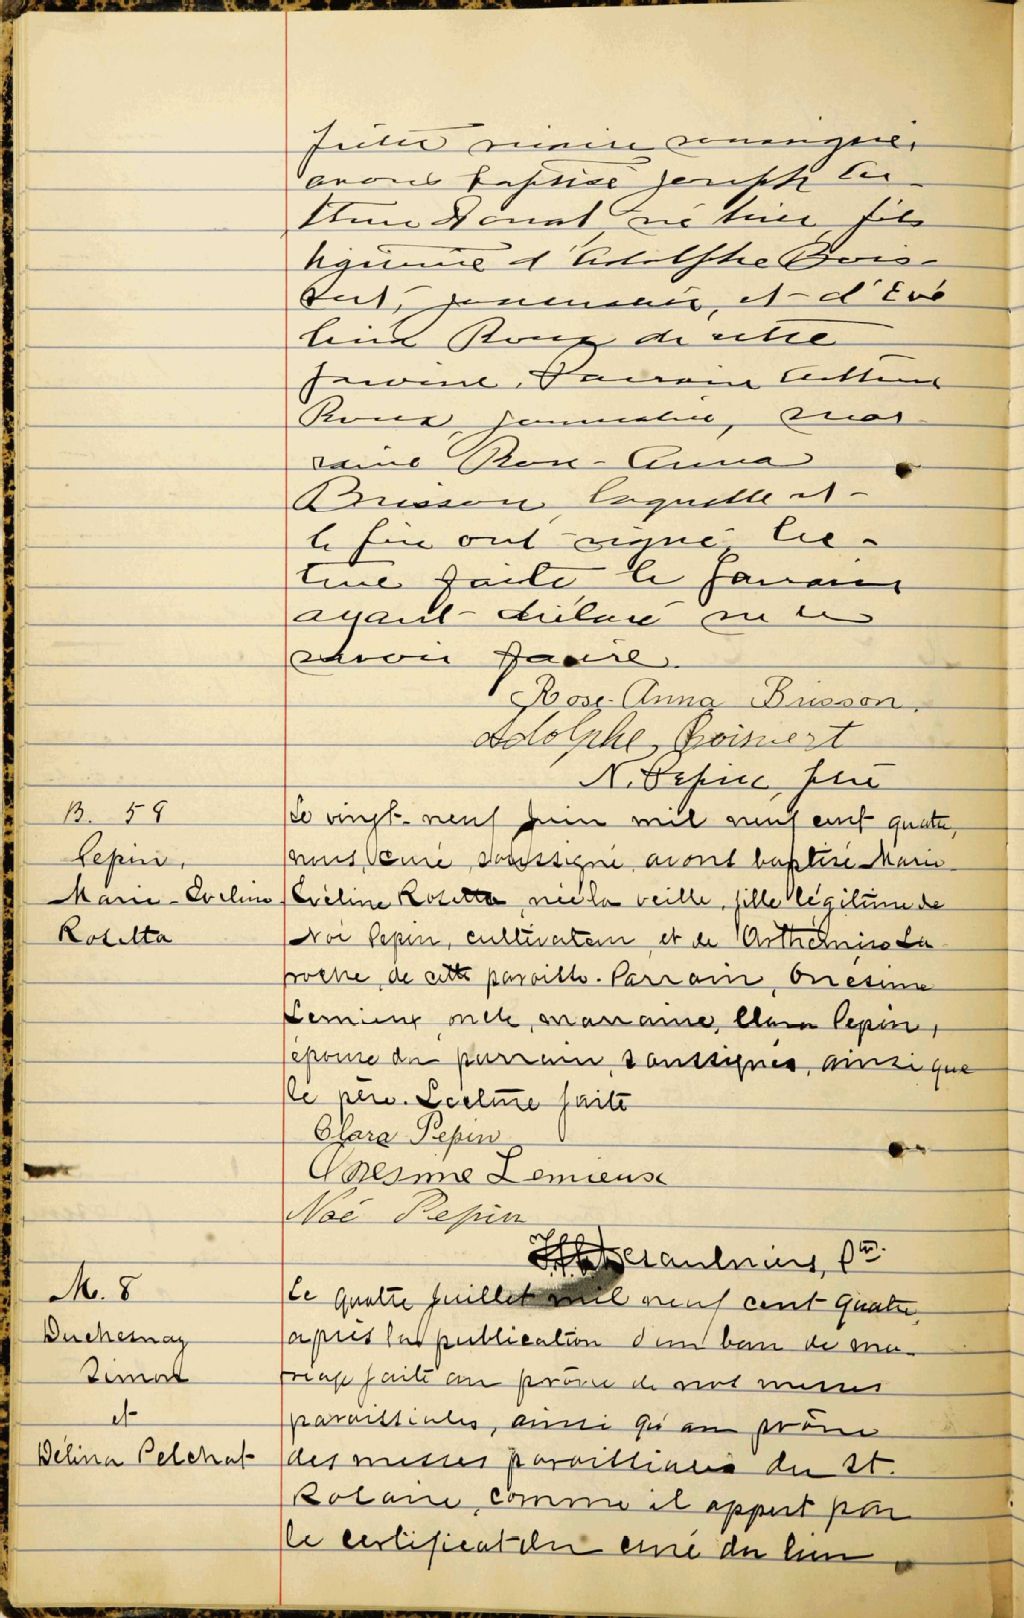 prêtre vicaire soussigné,
avons baptisé Joseph Ar-
thur Donat, né hier, fils
légitime d'Adolphe Bois-
vert, journalier, et d'Evé
lina Roux de cette
paroisse. Parrain Arthur
Roux, journalier, mar-
raine Rose-Anna
Brisson, laquelle et
le père ont signé, lec-
ture faite le parrain
ayant déclaré ne le
savoir faire.
Rose-Anna Brisson.
Adolphe Boisvert
N. Pepin, ptre
B. 59
Pepin,
Marie-Evelina
Rosetta
Le vingt-neuf Juin mil neuf cent quatre,
nous, curé, soussigné, avons baptisé Marie
Evéline Rosetta, née la veille, fille légitime de
Noé Pepin, cultivateur, et de Arthémise La
roche, de cette paroisse. Parrain, Onésime
Lemieux, oncle, marraine, Clara Pepin,
épouse du parrain, soussignés, ainsi que
le père. Lecture faite
Clara Pepin
Onesime Lemieux
Noé Pepin
Desaulniers, Ptre.
M. 8
Duchesnay
Simon
et
Délina Pelchat
Le quatre Juillet mil neuf cent quatre,
après la publication d'un ban de ma-
riage faite au prône de nos messes
paroissiales, ainsi qu'au prône
des messes paroissiales du St.
comme il appert par
le certificat du curé du lieu,